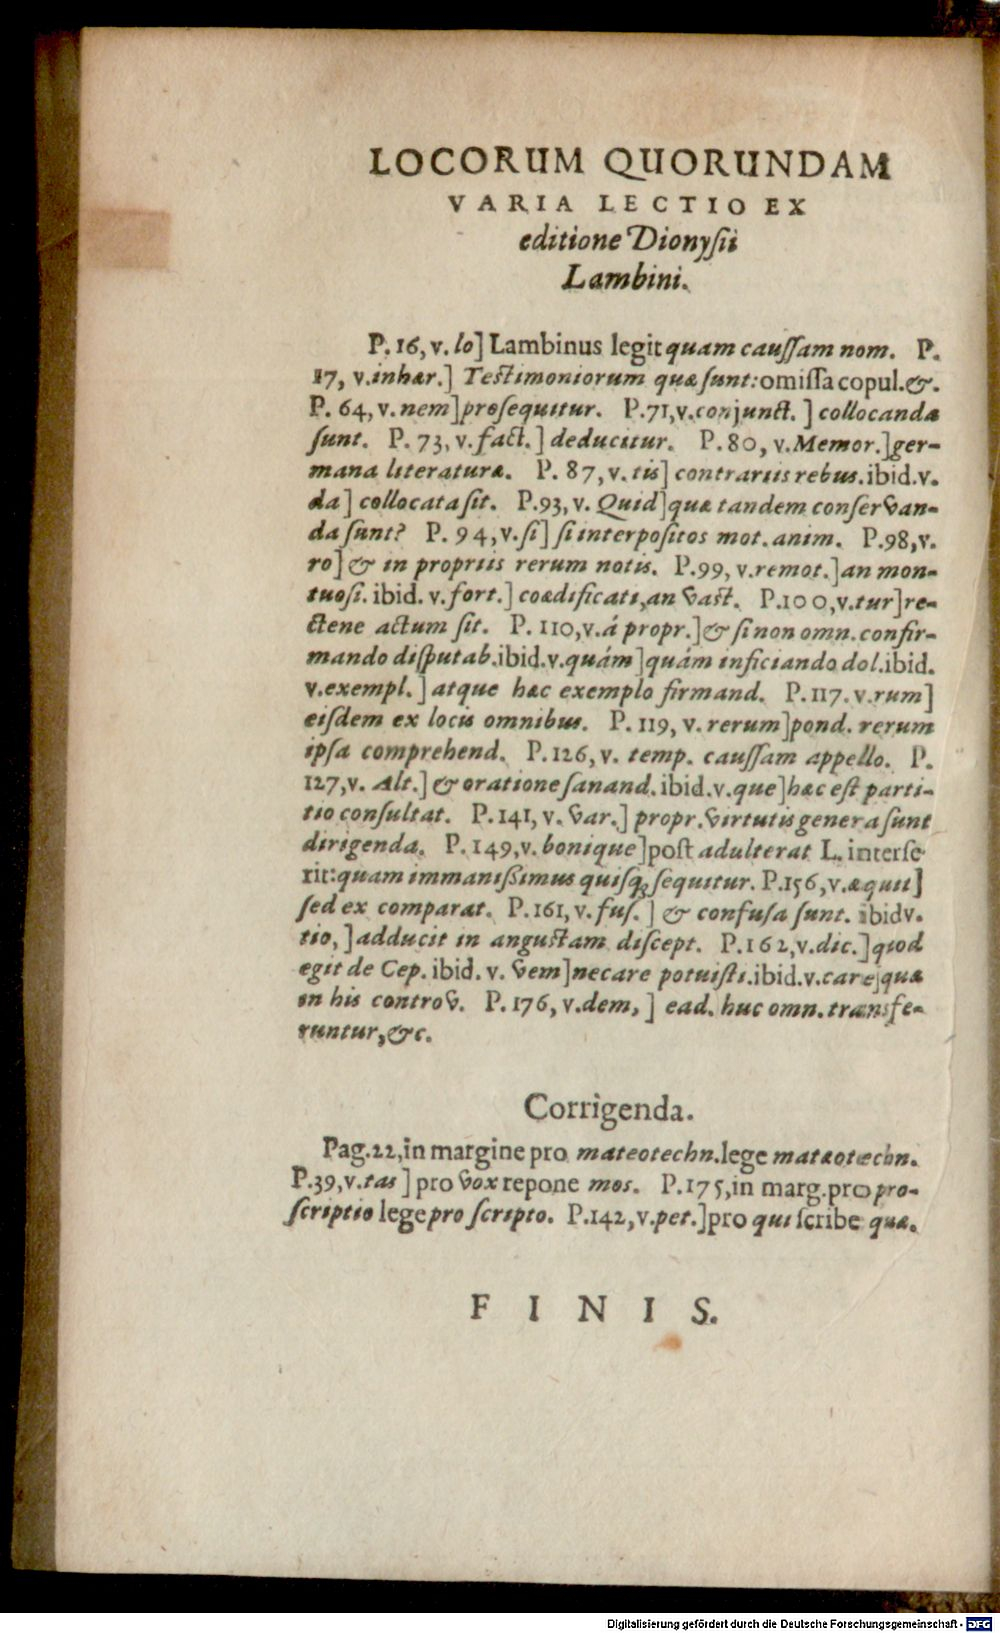 LOCORUM QUORUNDAM
VARIA LECTIO EX
editione Dionyſii
Lambini.
P. 16, v. lo] Lambinus legit quam cauſſam nom. P.
17, v. inhær.] Testimoniorum quæ ſunt: omiſſa copul. &.
P. 64, v. nem] proſequitur. P. 71, v. conjunct.] collocanda
ſunt. P. 73, v. fact.] deducitur. P. 80, v. Memor.] ger-
mana literaturæ. P. 87, v. tis] contrariis rebus. ibid. v.
da] collocata ſit. P. 93, v. Quid] quæ tandem conſervan-
da ſunt? P. 94, v. ſi] ſi interpoſitos mot. anim. P. 98, v.
ro] & in propriis rerum notis. P. 99, v. remot.] an mon-
tuoſi. ibid. v. fort.] coædificati, an vast. P. 100, v. tur] re-
ctene actum ſit. P. 110, v. á propr.] & ſi non omn. confir-
mando diſputab. ibid. v. quám] quám inficiando dol. ibid.
v. exempl.] atque hæc exemplo firmand. P. 117. v. rum]
eiſdem ex locis omnibus. P. 119, v. rerum] pond. rerum
ipſa comprehend. P. 126, v. temp. cauſſam appello. P.
127, v. Alt.] & oratione ſanand. ibid. v. que] hæc eſt parti-
tio conſultat. P. 141, v. var.] propr. virtutis genera ſunt
dirigenda. P. 149, v. bonique] poſt adulterat L. interſe
rit: quam immanißimus quiſq; ſequitur. P. 156, v. æquit]
ſed ex comparat. P. 161, v. fuſ.] & confuſa ſunt. ibid v.
tio,] adducit in angustam diſcept. P. 162, v. dic.] quod
egit de Cep. ibid. v. vem] necare potuiſti. ibid. v. care] quæ
in his controv. P. 176, v. dem,] ead. huc omn. transfe-
runtur, &c.
Corrigenda.
Pag. 22, in margine pro mateotechn. lege matæotechn.
P. 39, v. tas] pro vox repone mos. P. 175, in marg. pro pro-
ſcriptio lege pro ſcripto. P. 142, v. pet.] pro qui ſcribe quæ.
FINIS.
Digitalisierung gefördert durch die Deutsche Forschungsgemeinschaft - DFG